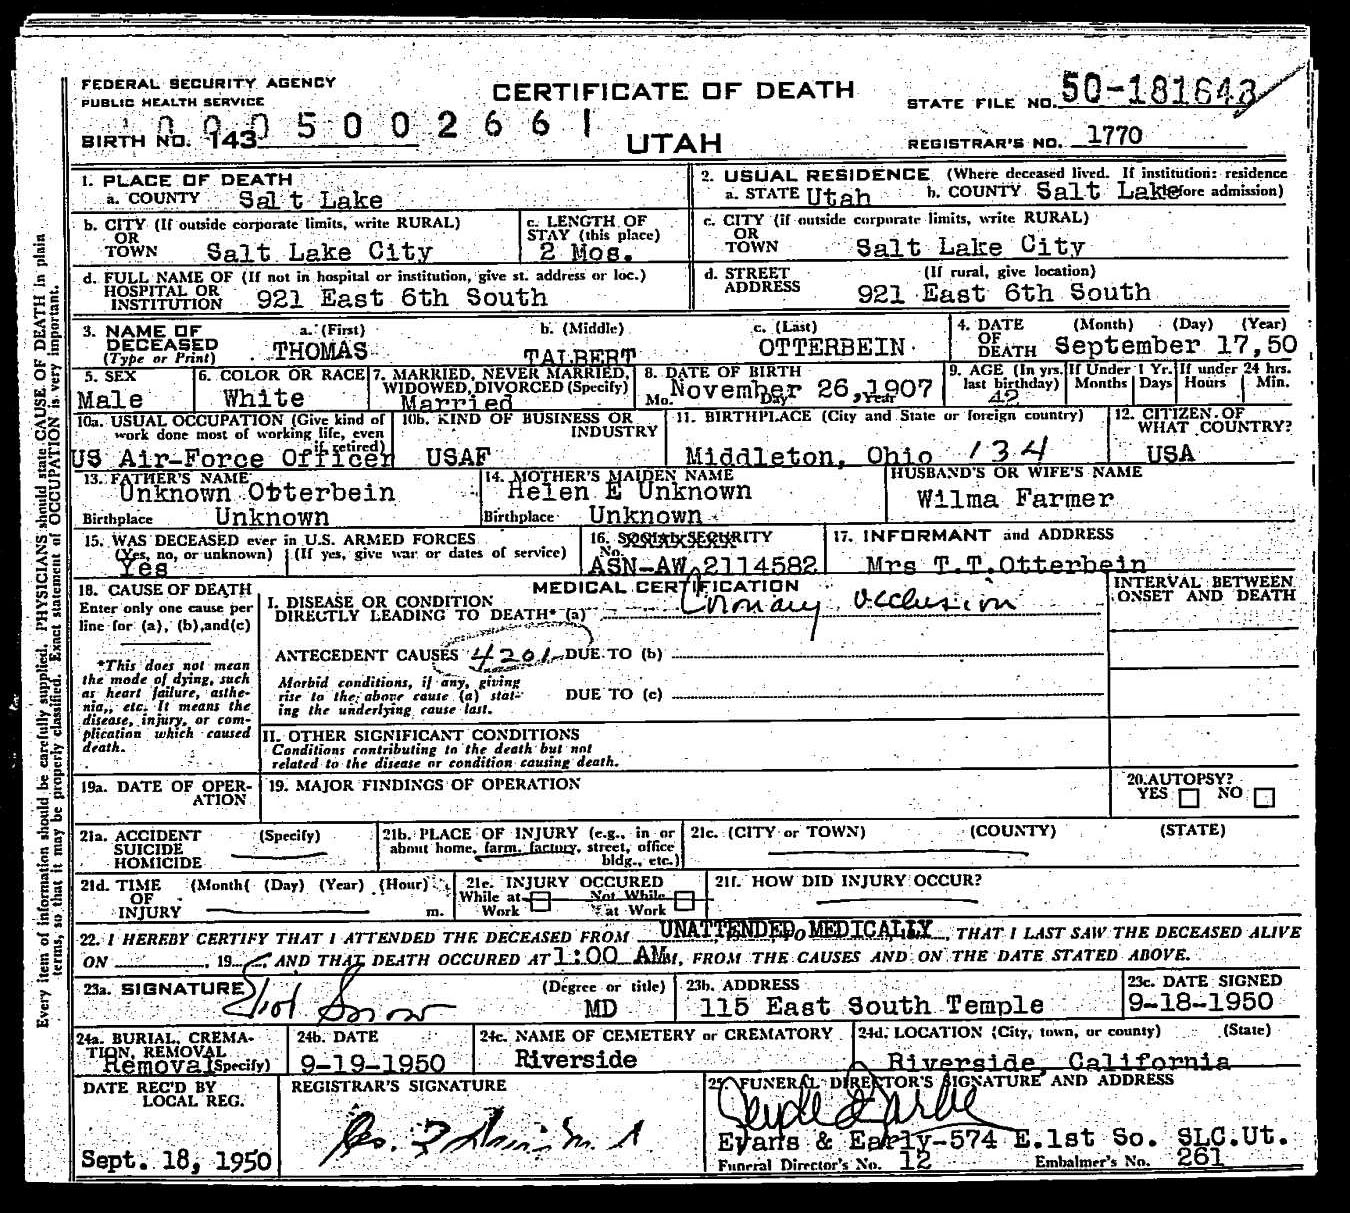 FEDERAL SECURITY AGENCY
PUBLIC HEALTH SERVICE
CERTIFICATE OF DEATH
UTAH
STATE FILE NO. 50-181643
BIRTH NO. 143
0 0 0 5 0 0 2 6 6 1
REGISTRAR'S NO. 1770
1. PLACE OF DEATH
a. COUNTY Salt Lake
2. USUAL RESIDENCE (Where deceased lived. If institution: residence before admission)
a. STATE Utah b. COUNTY Salt Lake
b. CITY (If outside corporate limits, write RURAL)
OR
TOWN Salt Lake City
c. LENGTH OF
STAY (this place)
2 Mos.
c. CITY (if outside corporate limits, write RURAL)
OR
TOWN Salt Lake City
d. FULL NAME OF (If not in hospital or institution, give st. address or loc.)
HOSPITAL OR
INSTITUTION 921 East 6th South
d. STREET (If rural, give location)
ADDRESS 921 East 6th South
3. NAME OF
DECEASED
(Type or Print)
a. (First) THOMAS
b. (Middle) TALBERT
c. (Last) OTTERBEIN
4. DATE (Month) (Day) (Year)
OF
DEATH September 17,50
5. SEX
Male
6. COLOR OR RACE
White
7. MARRIED, NEVER MARRIED,
WIDOWED, DIVORCED (Specify)
Married
8. DATE OF BIRTH
Mo. Day Year
November 26,1907
9. AGE (In yrs. last birthday)
42
If Under 1 Yr.
Months Days
If under 24 hrs.
Hours Min.
10a. USUAL OCCUPATION (Give kind of
work done most of working life, even
if retired)
US Air-Force Officer
10b. KIND OF BUSINESS OR
INDUSTRY
USAF
11. BIRTHPLACE (City and State or foreign country)
Middleton, Ohio 134
12. CITIZEN OF
WHAT COUNTRY?
USA
13. FATHER'S NAME
Unknown Otterbein
Birthplace Unknown
14. MOTHER'S MAIDEN NAME
Helen E Unknown
Birthplace Unknown
HUSBAND'S OR WIFE'S NAME
Wilma Farmer
15. WAS DECEASED ever in U.S. ARMED FORCES
(Yes, no, or unknown) (If yes, give war or dates of service)
Yes
16. SOCIAL SECURITY
No.
ASN-AW 2114582
17. INFORMANT and ADDRESS
Mrs T.T.Otterbein
18. CAUSE OF DEATH
Enter only one cause per
line for (a), (b),and(c)
*This does not mean
the mode of dying, such
as heart failure, asthe-
nia,, etc. It means the
disease, injury, or com-
plication which caused
death.
MEDICAL CERTIFICATION
I. DISEASE OR CONDITION
DIRECTLY LEADING TO DEATH* (a) Coronary occlusion
ANTECEDENT CAUSES 4201 DUE TO (b)
Morbid conditions, if any, giving
rise to the above cause (a) stat-
ing the underlying cause last.
DUE TO (c)
II. OTHER SIGNIFICANT CONDITIONS
Conditions contributing to the death but not
related to the disease or condition causing death.
INTERVAL BETWEEN
ONSET AND DEATH
19a. DATE OF OPER-
ATION
19. MAJOR FINDINGS OF OPERATION
20. AUTOPSY?
YES NO
21a. ACCIDENT (Specify)
SUICIDE
HOMICIDE
21b. PLACE OF INJURY (e.g., in or
about home, farm, factory, street, office
bldg., etc.)
21c. (CITY or TOWN) (COUNTY) (STATE)
21d. TIME (Month( (Day) (Year) (Hour)
OF
INJURY m.
21e. INJURY OCCURED
While at Not While
Work at Work
21f. HOW DID INJURY OCCUR?
22. I HEREBY CERTIFY THAT I ATTENDED THE DECEASED FROM UNATTENDED MEDICALLY, THAT I LAST SAW THE DECEASED ALIVE
ON , 19 , AND THAT DEATH OCCURED AT 1:00 AM m., FROM THE CAUSES AND ON THE DATE STATED ABOVE.
23a. SIGNATURE (Degree or title)
Eliot Snow MD
23b. ADDRESS
115 East South Temple
23c. DATE SIGNED
9-18-1950
24a. BURIAL, CREMA-
TION, REMOVAL
(Specify)
Removal
24b. DATE
9-19-1950
24c. NAME OF CEMETERY or CREMATORY
Riverside
24d. LOCATION (City, town, or county) (State)
Riverside, California
DATE REC'D BY
LOCAL REG.
Sept. 18, 1950
REGISTRAR'S SIGNATURE
25. FUNERAL DIRECTOR'S SIGNATURE AND ADDRESS
Evans & Early-574 E.1st So. SLC.Ut.
Funeral Director's No. 12 Embalmer's No. 261
Every item of information should be carefully supplied. PHYSICIANS should state CAUSE OF DEATH in plain
terms, so that it may be properly classified. Exact statement of OCCUPATION is very important.